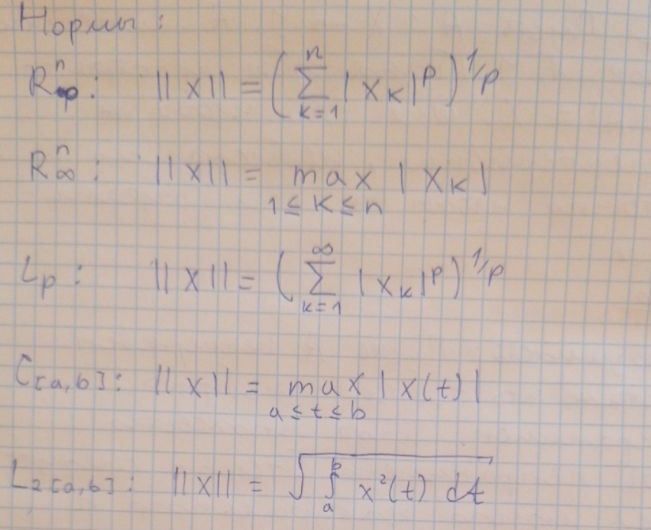 Нормы:
Rⁿₚ: ||x|| = (∑ₖ₌₁ⁿ |xₖ|ᵖ)^(1/p)
Rⁿ∞: ||x|| = max |xₖ|
1≤k≤n
Lₚ: ||x|| = (∑ₖ₌₁^∞ |xₖ|ᵖ)^(1/p)
C[a,b]: ||x|| = max |x(t)|
a≤t≤b
L₂[a,b]: ||x|| = √(∫ₐᵇ x²(t) dt)